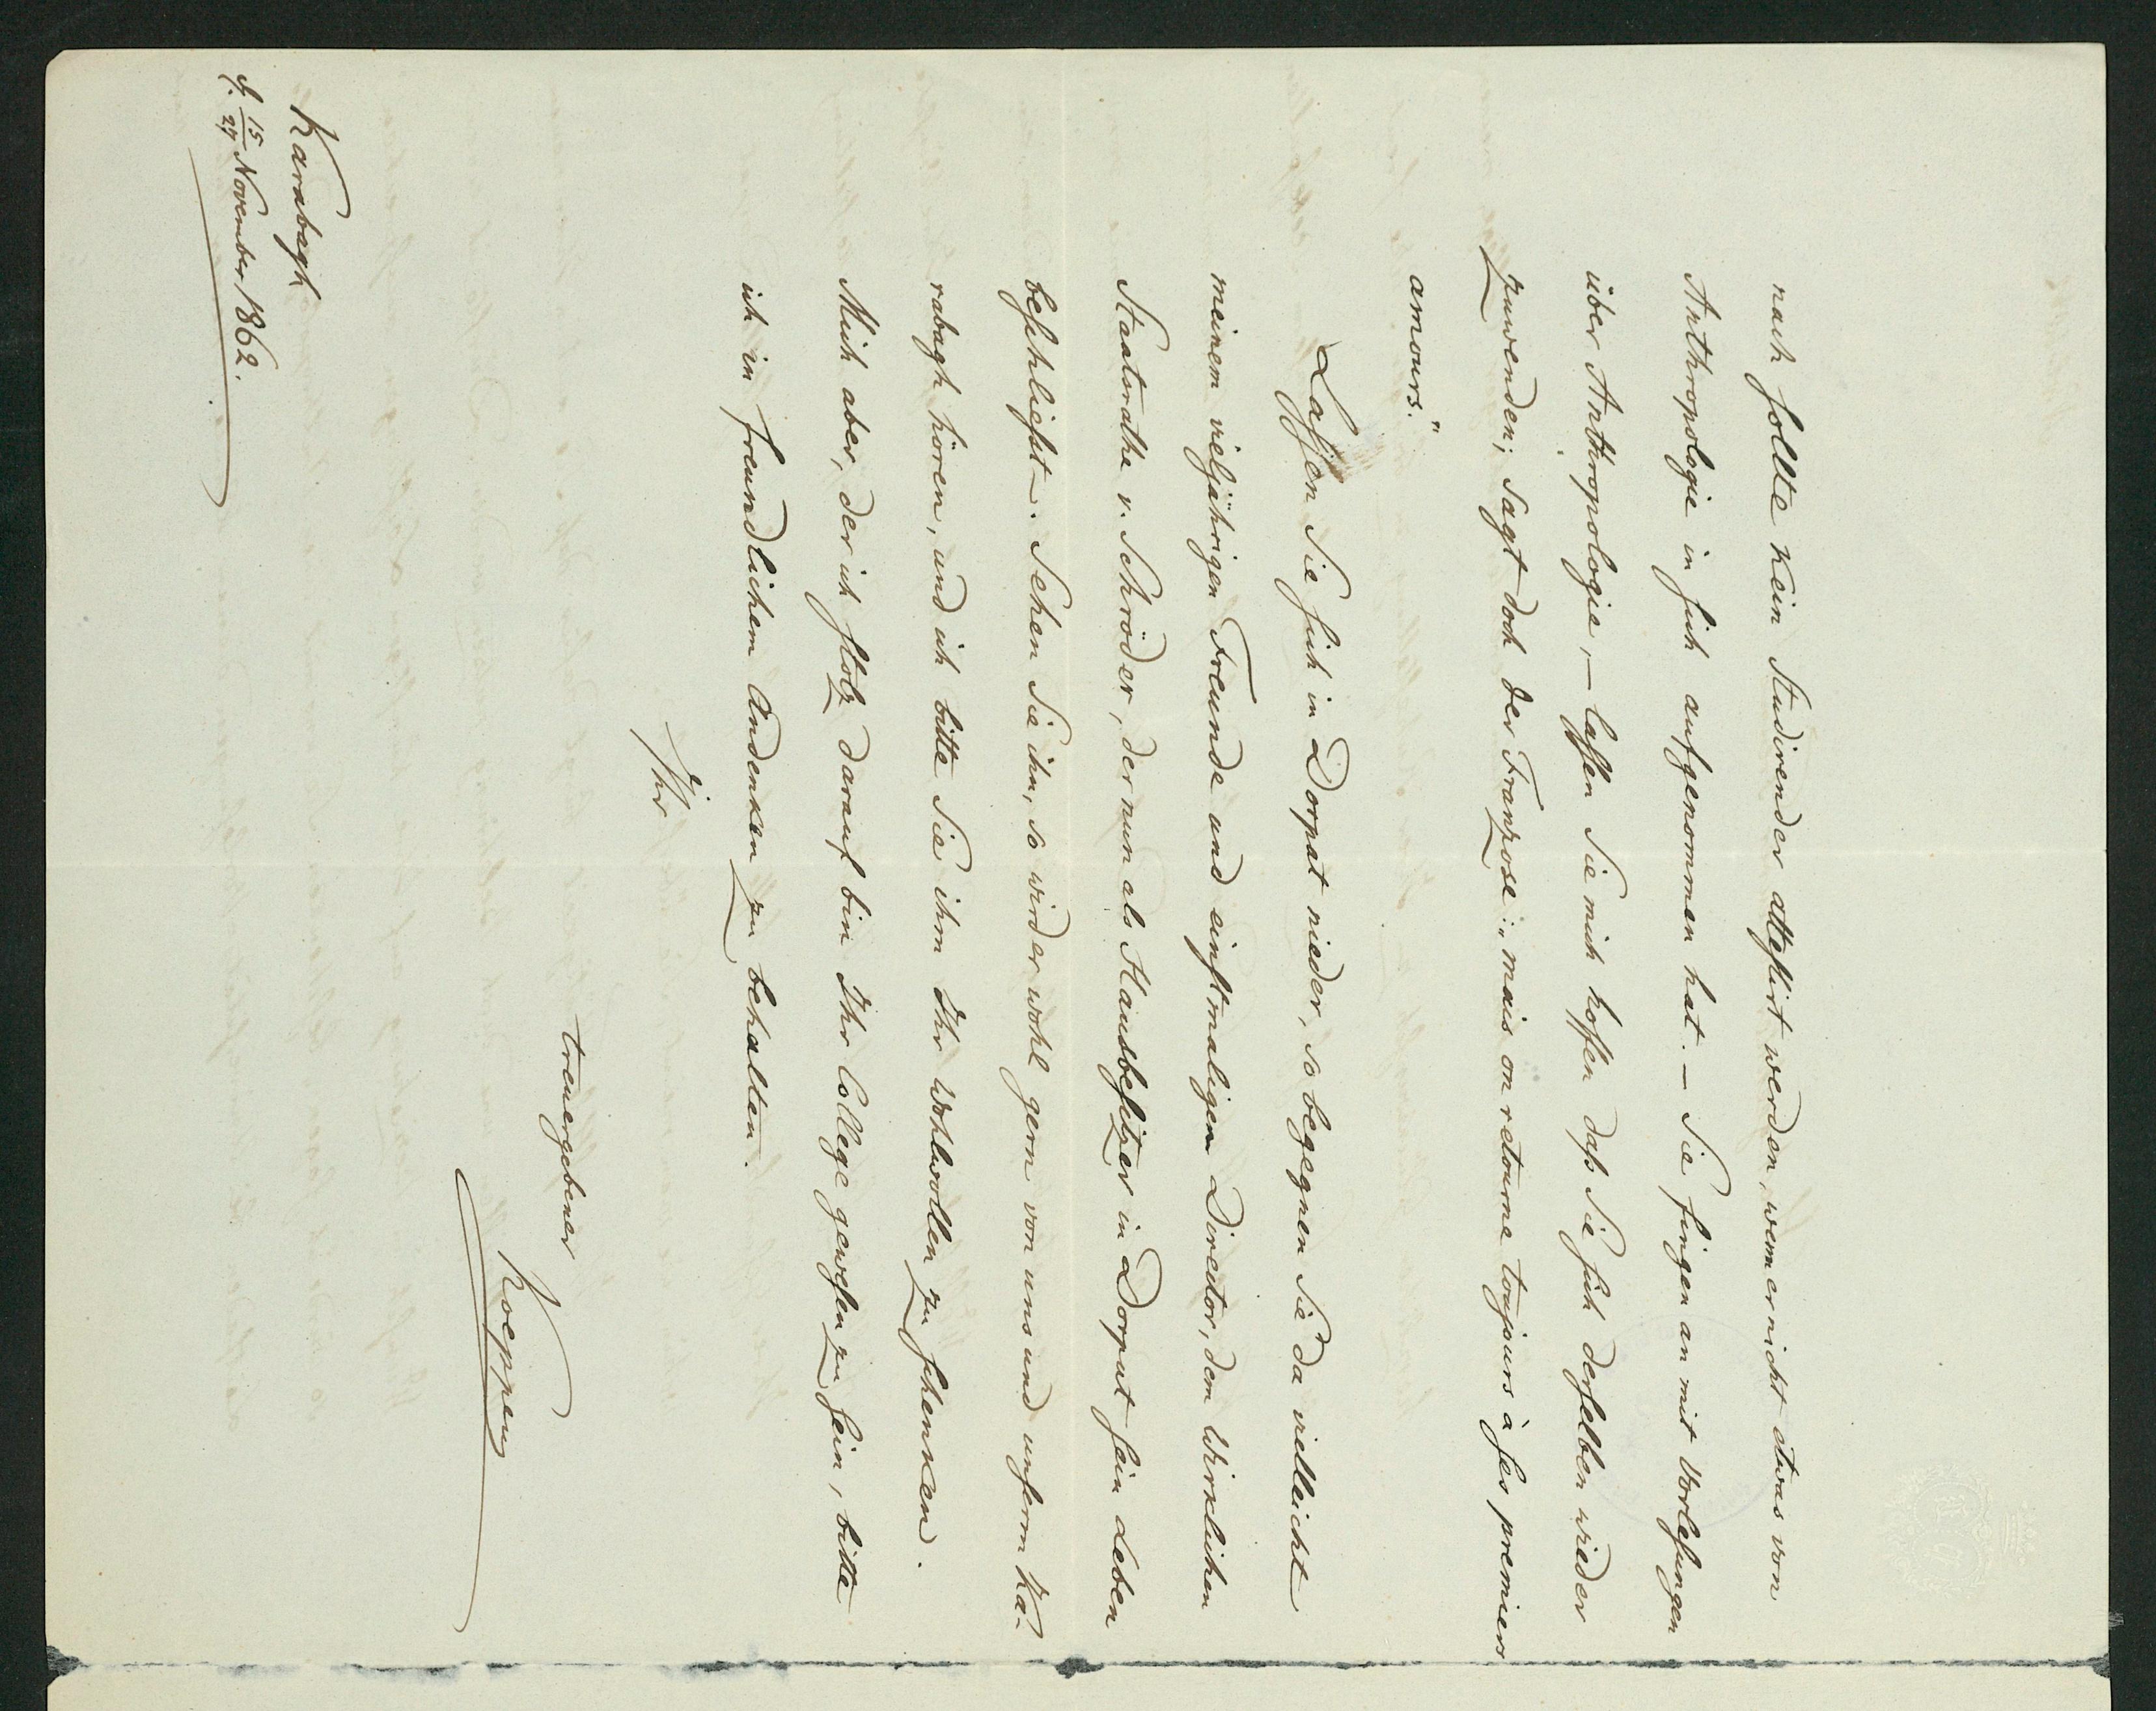 nach sollte kein Studirender attestirt werden, wenn er nicht etwas von
Anthropologie in sich aufgenommen hat. – Sie fingen an mit Vorlesungen
über Anthropologie, – lassen Sie mich hoffen daß Sie sich derselben wieder
zuwenden; sagt doch der Franzose: „mais on retourne toujours à ses premiers
amours."
Lassen Sie sich in Dorpat nieder, so begegnen Sie da vielleicht
meinem vieljährigen Freunde und einstmaligen Director, dem Wirklichen
Staatsrathe v. Schröder, der nun als Hausbesitzer in Dorpat sein Leben
beschliesst. Sehen Sie ihn, so wird er wohl gern von uns und unserm Ka-
rabagh hören, und ich bitte Sie ihm Ihr Wohlwollen zu schenken.
Mich aber, der ich stolz darauf bin Ihr College gewesen zu sein, bitte
ich in freundlichem Andenken zu behalten.
Ihr
treuergebener
Koeppen
Karabagh
d. 15/27 November 1862.